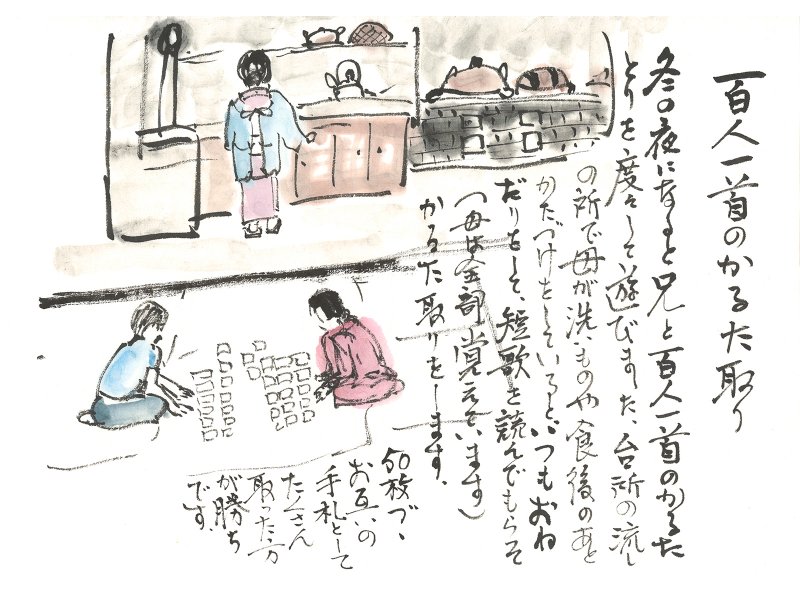 百人一首のかるた取り
冬の夜になると兄と百人一首のかるた
とりを度々して遊びました、台所の流し
の所で母が洗いものや食後のあと
かたづけをしていると、いつもおね
だりをして、短歌を読んでもらって
(母は全部覚えています)
かるた取りをします。
50枚づゝ
お互いの
手札として
たくさん
取った方
が勝ち
です。